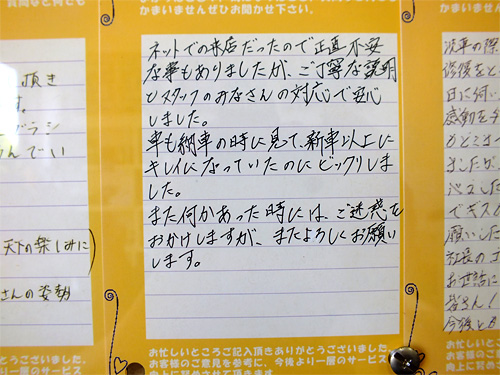 かまいませんぜひお聞かせ下さい。
ネットでの来店だったので正直不安
な事もありましたが、ご丁寧な説明
とスタッフのみなさんの対応で安心
しました。
車も納車の時に見て、新車以上に
キレイになっていたのにビックリしま
した。
また何かあった時には、ご迷惑を
おかけしますが、またよろしくお願い
します。
お忙しいところご記入頂きありがとうございました。
お客様のご意見を参考に、今後より一層のサービス
向上に努めさせて頂きます。
頂き
す。
天下の楽しみに)
さんの姿勢
ございました。
り一層のサービス
かまいませんぜ
感動を
願いした
社長の
お世話に
皆さん!
今後とも
お忙しいところ
お客様のご意見